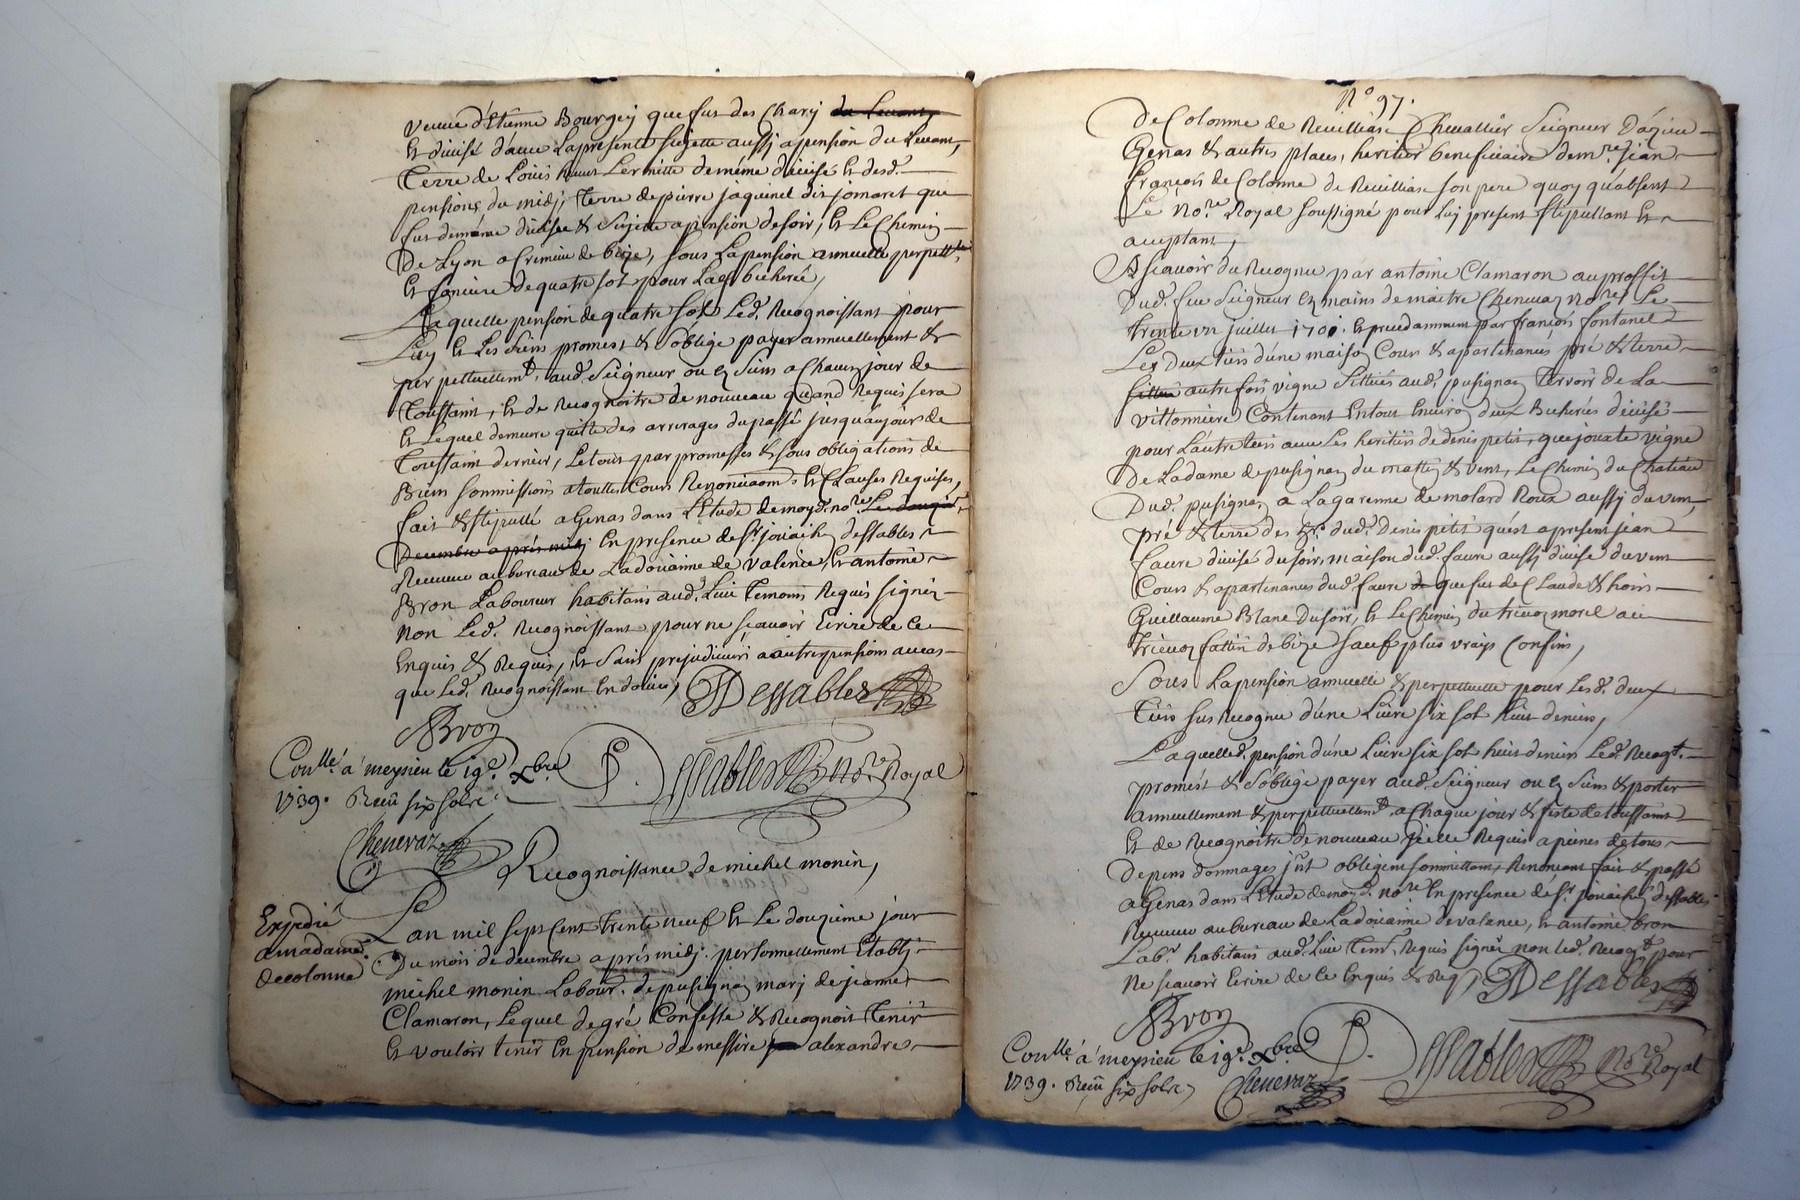 veuve d'Etienne Bourgey que fut des Chary du Levant
Et divisé d'avec La presente sujette aussy a pension du Levant,
Terre de Loüis heur Lermitte de méme divisé Et desd.
pensions du midj, Terre de pierre jaquinel dit jomaret que
fut deméme divisée & Sujette a pension de soir, Et Le Chemin
De Lyon a Cremieu de bize, sous La pension annuelle perpetle.
Et fonciere de quatre sol pour Lad. bicherée,
Laquelle pension de quatre sols Led. Recognoissant pour
Luy Et Les siens promest & s'oblige payer annuellement &
perpettuellemt. aud. Seigneur ou Ez siens a Chaun jour de
Toussaint, Et de Recognoitre de nouveau quand Requis sera
Et Lequel demeure quitte des arrerages du passé jusqu'aujour de
Toussaint dernier, Le tout par promesses & sous obligations de
Biens sommissions a touttes Cours Renonciaons Et Clauses Requises,
fait & stipullé a Genas dans L'Etude de moyd. nore. Le douzie.
Decembre apres midj En presence de sr. jouachin dessables
Receveur au bureau de La doüanne de valence, Et antoine
Bron Laboureur habitans aud. Lieu Temoins Requis signéz
non Led. Recognoissant pour ne sçavoir Ecrire de Ce
Enquis & Requis, Et sans prejudicier a autre pensions au cas
que Led. Recognoissant En doive, Dessables
ABron
Coullé. á meysieu le 19e. xbre Dessables Nore. Royal
1739. Receu six sols
Chenevaz
Recognoissance de michel monin,
Expedié
a madame
decolonne
L'an mil sept Cent trente neuf Et Le douzieme jour
Du mois de decembre apres midj. personnellement Establj
michel monin Labour. de pusignan marj de jeanne
Clamaron, Lequel de gré Confesse & Recognoit Tenir
Et vouloir tenir En pension de messire alexandre
No 97.
De Colonne de Reuilliase Chevallier Seigneur D'azieu
Genas & autres places, heritier beneficiaire de mre. jean
françois de Colonne de Reuilliase son pere quoy qu'absent
Le Nore. Royal soussigné pour Luj present stipullant Et
acceptant,
A sçavoir du Recognu par antoine Clamaron au proffit
Dud. feu Seigneur Ez mains de maitre Chenevaz nore. Le
trente un juillet 1701. Et precedamment par françois fontanel
Les deux tiers d'une maison Cour & apartenances pré & terre
sittué autre fois vigne sittués aud. pusignan Terroir de La
vittonniere Contenant En tout Environ deux Bicherées divisé
pour L'autre tiers avec Les heritiers de denis petit, que jouxte vigne
De La dame de pusignan du mattin & vent, Le Chemin du Chateau
Dud. pusignan a La garenne de molard Roux aussy du vent,
pré & terre des hrs. dud. Denis petit qu'est a present jean
faure divisé du soir, maison dud. faure aussy divise du vent
Cours & apartenances dud. faure de que fut de Claude & hoirs
Guillaume Blanc Du soir, Et Le Chemin du trievoz morel au
trievoz fattin de bize sauf plus vrays Confins,
Sous La pension annuelle & perpettuelle pour Lesd. deux
tiers sus Recognu d'une Livre six sol huit deniers,
Laquelle d. pension d'une Livre six sol huit deniers Led. Recogt.
promest & s'oblige payer aud. Seigneur ou Ez siens & porter
annuellement & perpettuellemt. a Chaque jour & feste de toussaint
Et de Recognoitre de nouveau qu'elle Requis a peines de tous
Depens dommages jnt obligent sommettant, Renoncant fait & passé
a Genas dans L'Etude demoyd. nore. En presence de sr. jouachin dessables
Receveur au bureau de La doüanne de valance, Et antoine bron
Labr. habitans aud. Lieu Temt. Requis signés non led. Recogt. pour
Ne sçavoir Ecrire de Ce Enquis & Req, Dessables
ABron
Coullé. á meysieu le 19e. xbre Dessables Nore. Royal
1739. Receu six sols, Chenevaz